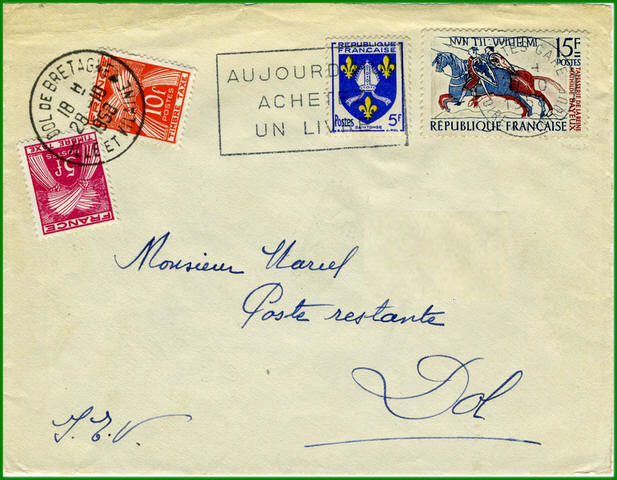 DOL DE BRETAGNE
18 H
28-10
1958
ILLE ET VILAINE
10F
POSTES
TIMBRE TAXE
FRANCE
5F
POSTES
TIMBRE TAXE
FRANCE
AUJOURD
ACHET
UN LIV
REPUBLIQUE FRANÇAISE
Postes
5F
SAINTONGE
NVNTII: VVILLELMI
15F
POSTES
TAPISSERIE DE LA REINE
MATHILDE BAYEUX
RÉPUBLIQUE FRANÇAISE
GARE
Monsieur Marcel
Poste restante
Dol
I.E.V.